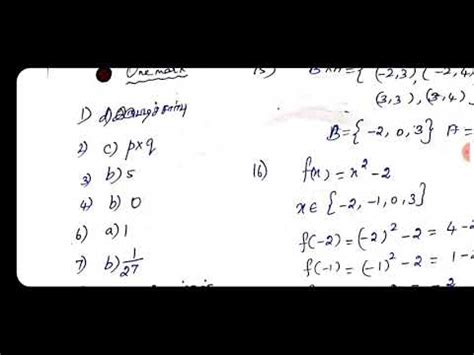 One mark
1) d)
2) c) p×q
3) b) 5
4) b) 0
6) a) 1
7) b) 1/27
15) B×A={(-2,3),(-2,4)
(3,3),(3,4)
B={-2,0,3} A=
16) f(x)=x²-2
x∈{-2,-1,0,3}
f(-2)=(-2)²-2=4-2
f(-1)=(-1)²-2=1-2